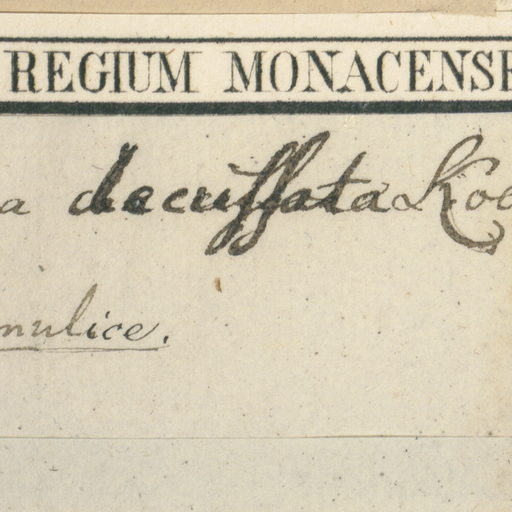 REGIUM MONACENSE
a decussata Koc
mulice.